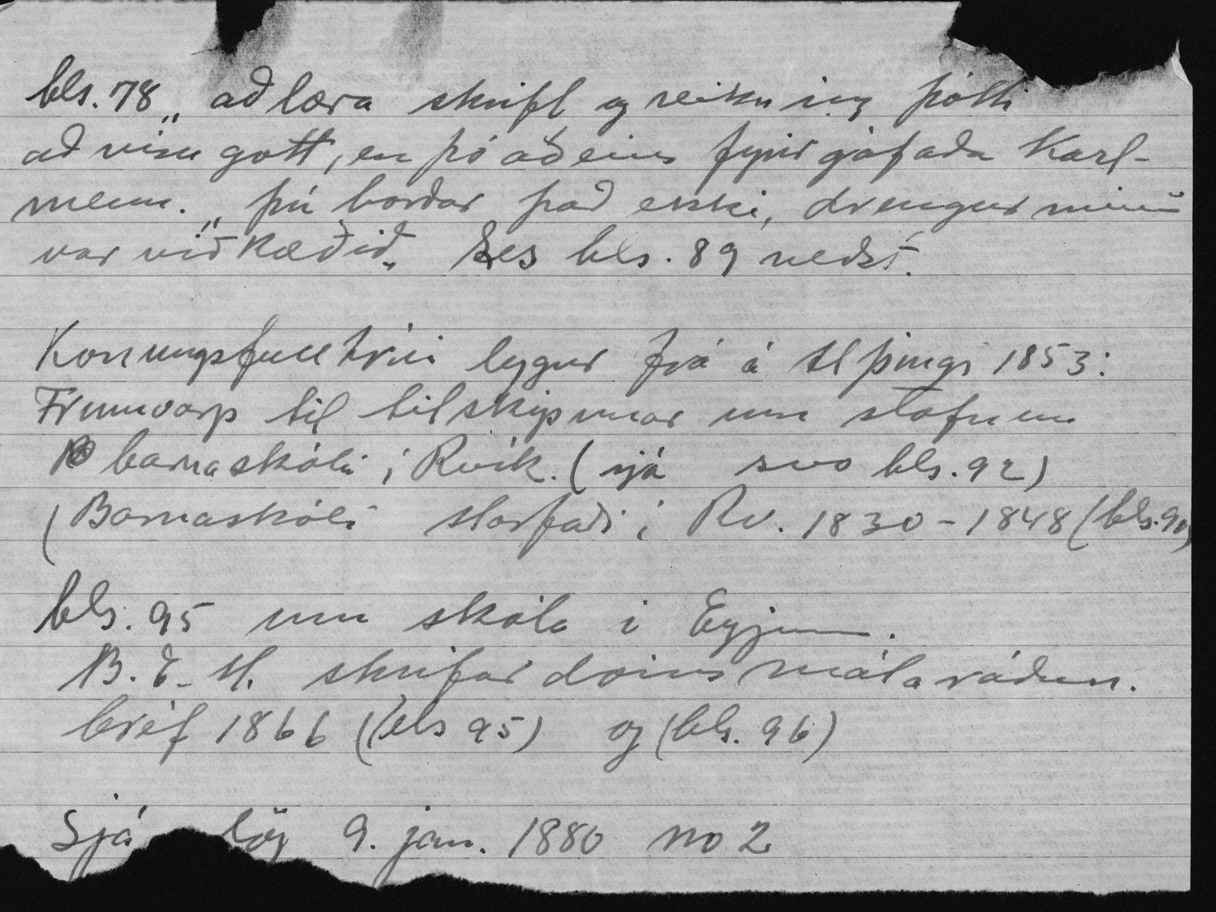 bls. 78 „ að læra skrift og reikning þótti
að vísu gott, en þó aðeins fyrir gáfaða karl-
menn. „ þú borðar það ekki, drengur minn
var viðkvæðið„ Les bls. 89 neðst.
Konungsfulltrúi leggur frá á Alþingi 1853:
Frumvarp til tilskipunar um stofnun
barnaskóla í Rvík. (sjá svo bls. 92)
(Barnaskóli starfaði í Rv. 1830-1848 (bls. 90)
bls. 95 um skóla í Eyjum.
B. E. M. skrifar dómsmálaráðun.
bréf 1866 (bls 95) og (bls. 96)
Sjá lög 9. jan. 1880 no 2